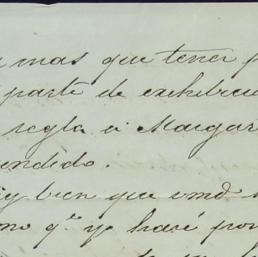 mas que tener p
parte de exhibici
regla á Margar
endido.
y bien que vmd.
no q.e yo haré por